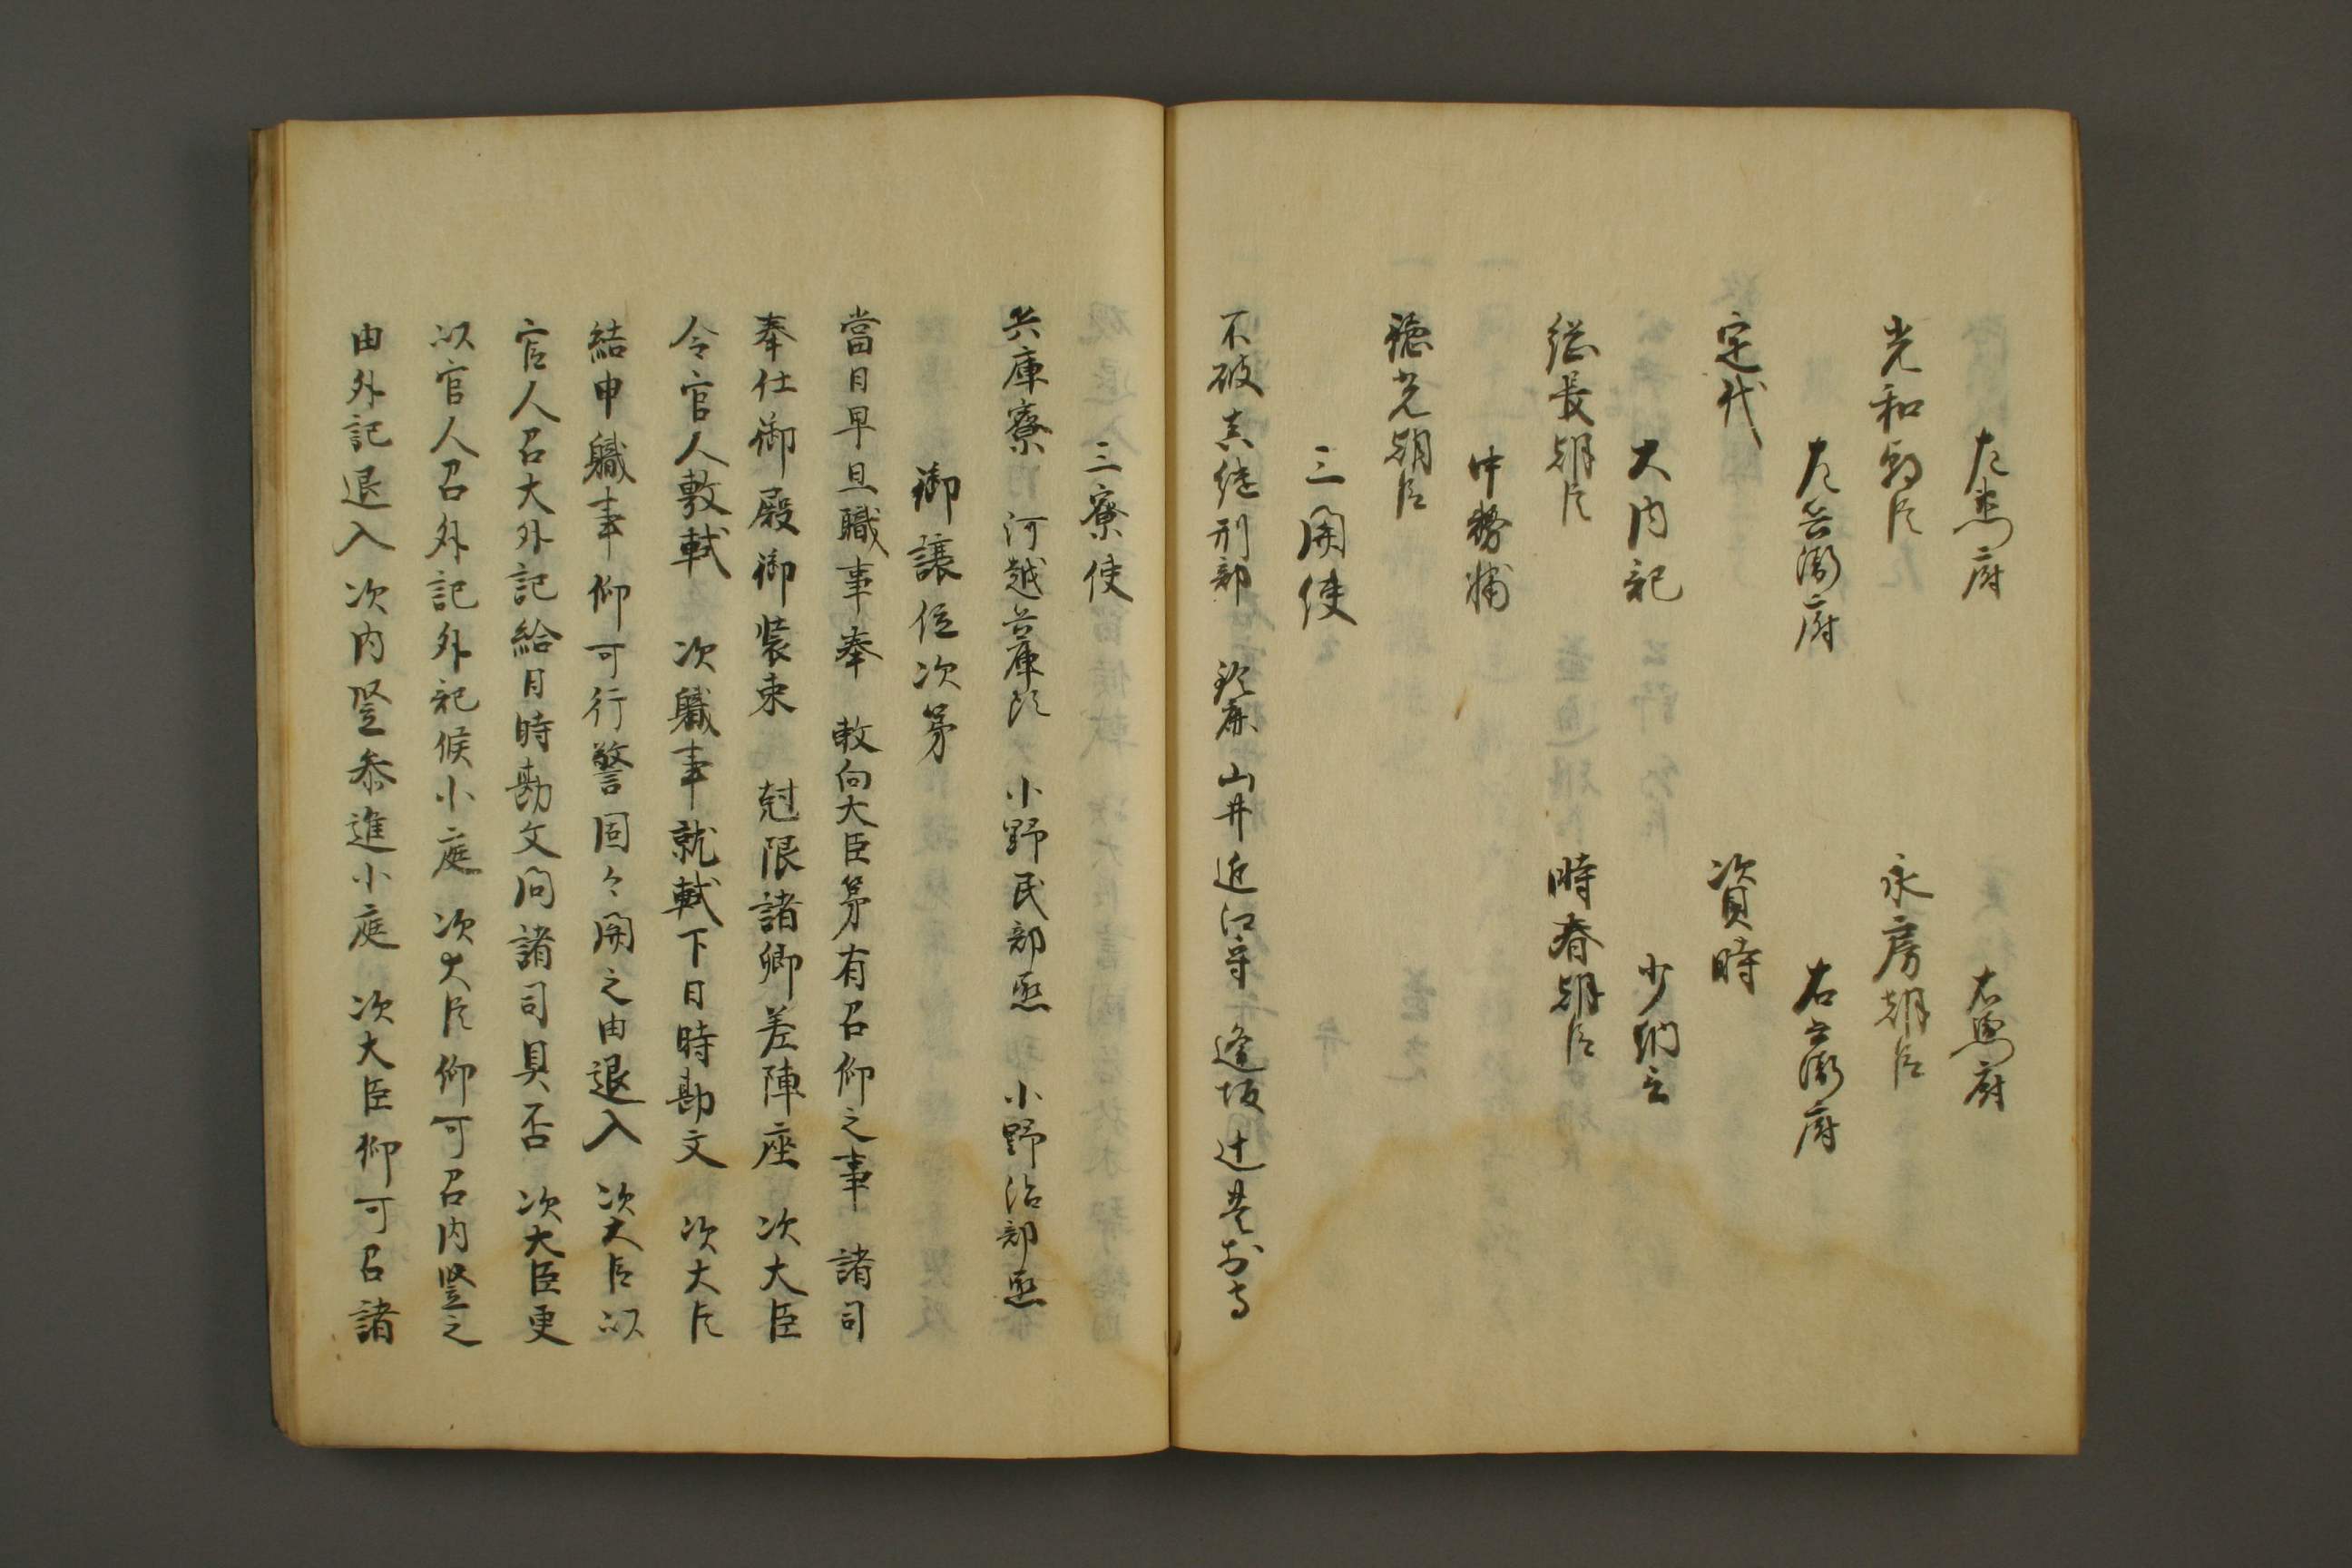 左馬府 右馬府
光和朝臣 永房朝臣
左兵衛府 右兵衛府
定代 資時
大内記 少納言
総長朝臣 時春朝臣
中務輔
徳光朝臣
三関使
不破 真継刑部 鈴鹿 山井近江守 逢坂 辻豊前守
三寮使
兵庫寮 河越兵庫頭 小野民部丞 小野治部丞
御譲位次第
當日早旦職事奉 敕向大臣第有召仰之事 諸司
奉仕御殿御装束 尅限諸卿差陣座 次大臣
令官人敷軾 次職事就軾下日時勘文 次大臣
結申職事仰可行警固々関之由退入 次大臣以
官人召大外記給日時勘文問諸司具否 次大臣更
以官人召外記外記候小庭 次大臣仰可召内竪之
由外記退入 次内竪参進小庭 次大臣仰可召諸